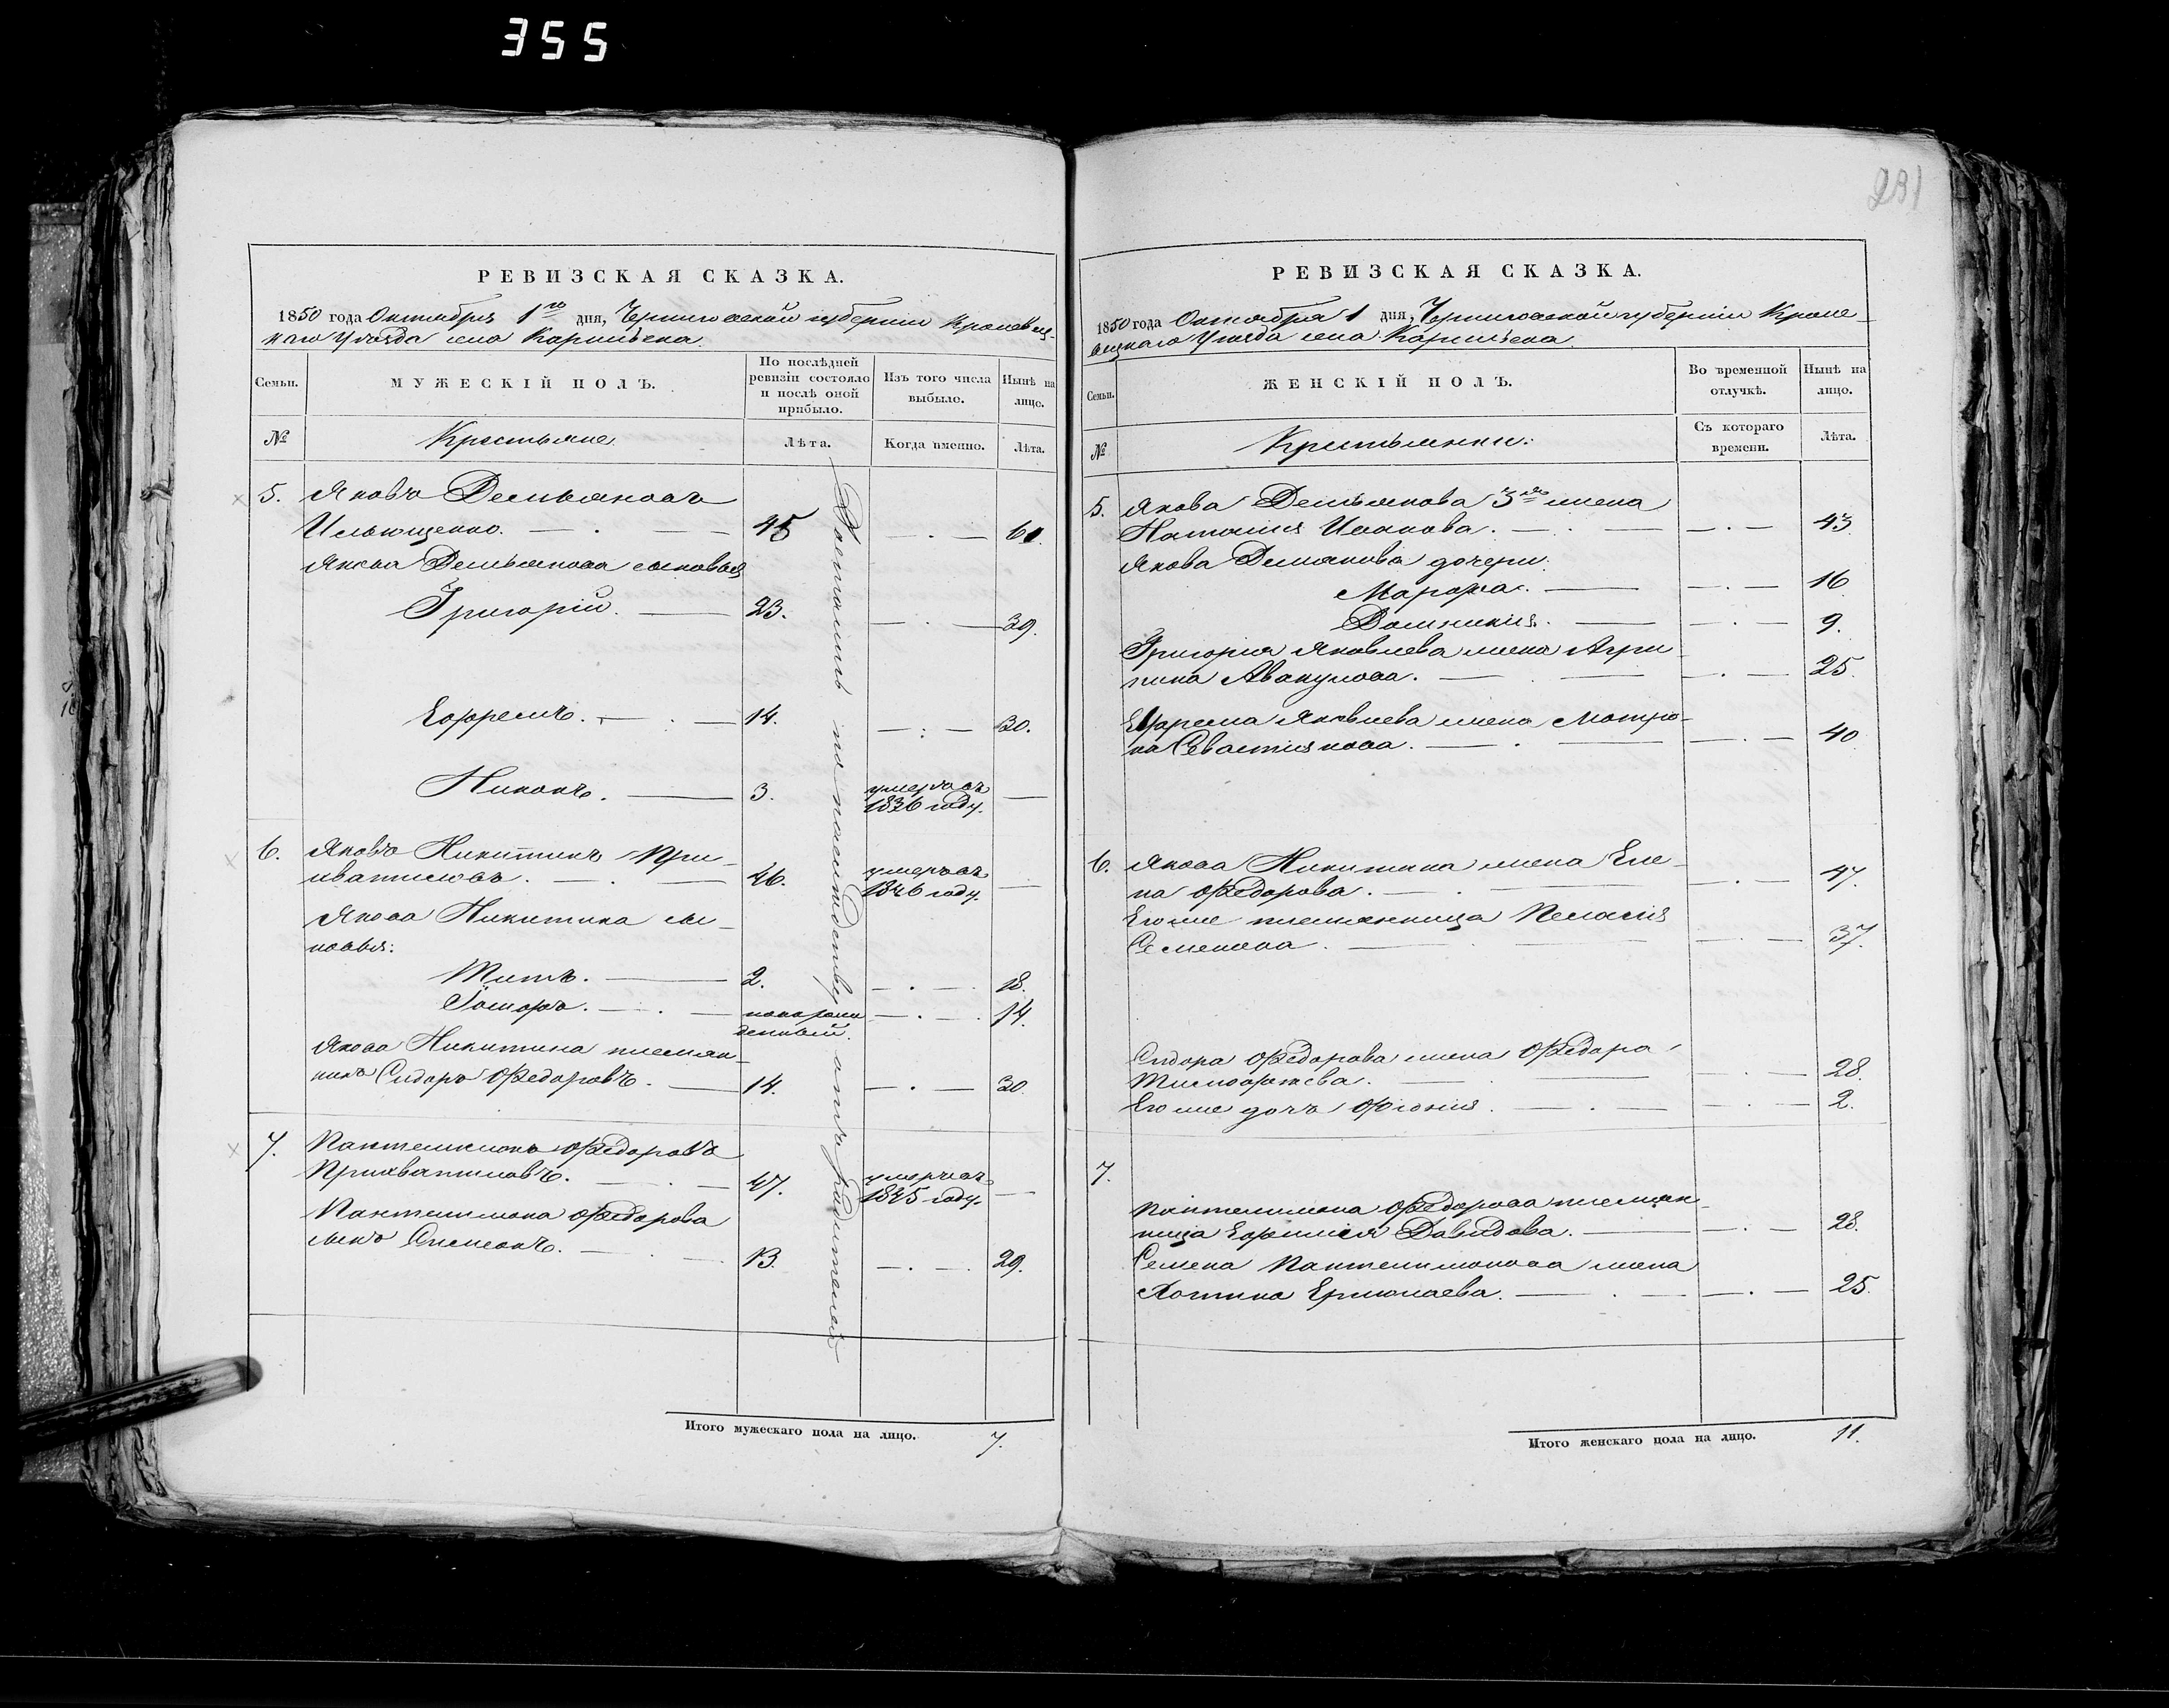 355
РЕВИЗСКАЯ СКАЗКА.
1850 года Октября 1го дня, Черниговской губернии Кролевец-
каго Уезда села Карыльска.
Семьи. МУЖЕСКІЙ ПОЛЪ. По послѣдней ревизіи состояло и послѣ оной прибыло. Изъ того числа выбыло. Нынѣ на лицо.
№ Крестьяне. Лѣта. Когда именно. Лѣта.
5. Яковъ Демьяновъ
Ильющенко. 45 — . — 61.
Якова Демьянова сыновья
Григорій. 23. — . — 39.
Ефремъ. 14. — . — 30.
Никонъ. 3. умеръ въ 1836 году. —
6. Яковъ Никитинъ При-
хватиловъ. 46. умеръ въ 1846 году. —
Якова Никитина сы-
новья:
Титъ. 2. — . — 18.
новорож-
денный. — . — 14.
Якова Никитина племян-
никъ Сидоръ Федоровъ. 14. — . — 30.
7. Пантелимонъ Федоровъ
Прихватиловъ. 47. умеръ въ 1845 году. —
Пантелимона Федорова
сынъ Симеонъ. 13. — . — 29.
Достались по наслѣдству отъ родителей
Итого мужескаго пола на лицо. 7.
231
РЕВИЗСКАЯ СКАЗКА.
1850 года Октября 1 дня, Черниговской губерніи Кроле-
вецкаго Уезда села Карыльска.
Семьи. ЖЕНСКІЙ ПОЛЪ. Во временной отлучкѣ. Нынѣ на лицо.
№ Крестьянки. Съ котораго времени. Лѣта.
5. Якова Демьянова 3я жена
Наталия Иванова. — . — 43.
Якова Демянова дочери:
Марфа. — . — 16.
Домникия. — . — 9.
Григория Яковлева жена Агри-
пина Авакумова. — . — 25.
Ефрема Яковлева жена Матро-
на Севастиянова. — . — 40.
6. Якова Никитина жена Еле-
на Федорова. — . — 47.
Его же племянница Пелагия
Семенова. — . — 37.
Сидора Федорова жена Федора
Тимофеева. — . — 28.
Его же дочь Фиония. — . — 2.
7.
Пантелимона Федорова племян-
ница Ефимия Давидова. — . — 28.
Семена Пантелимонова жена
Хотина Ермолаева. — . — 25.
Итого женскаго пола на лицо. 11.